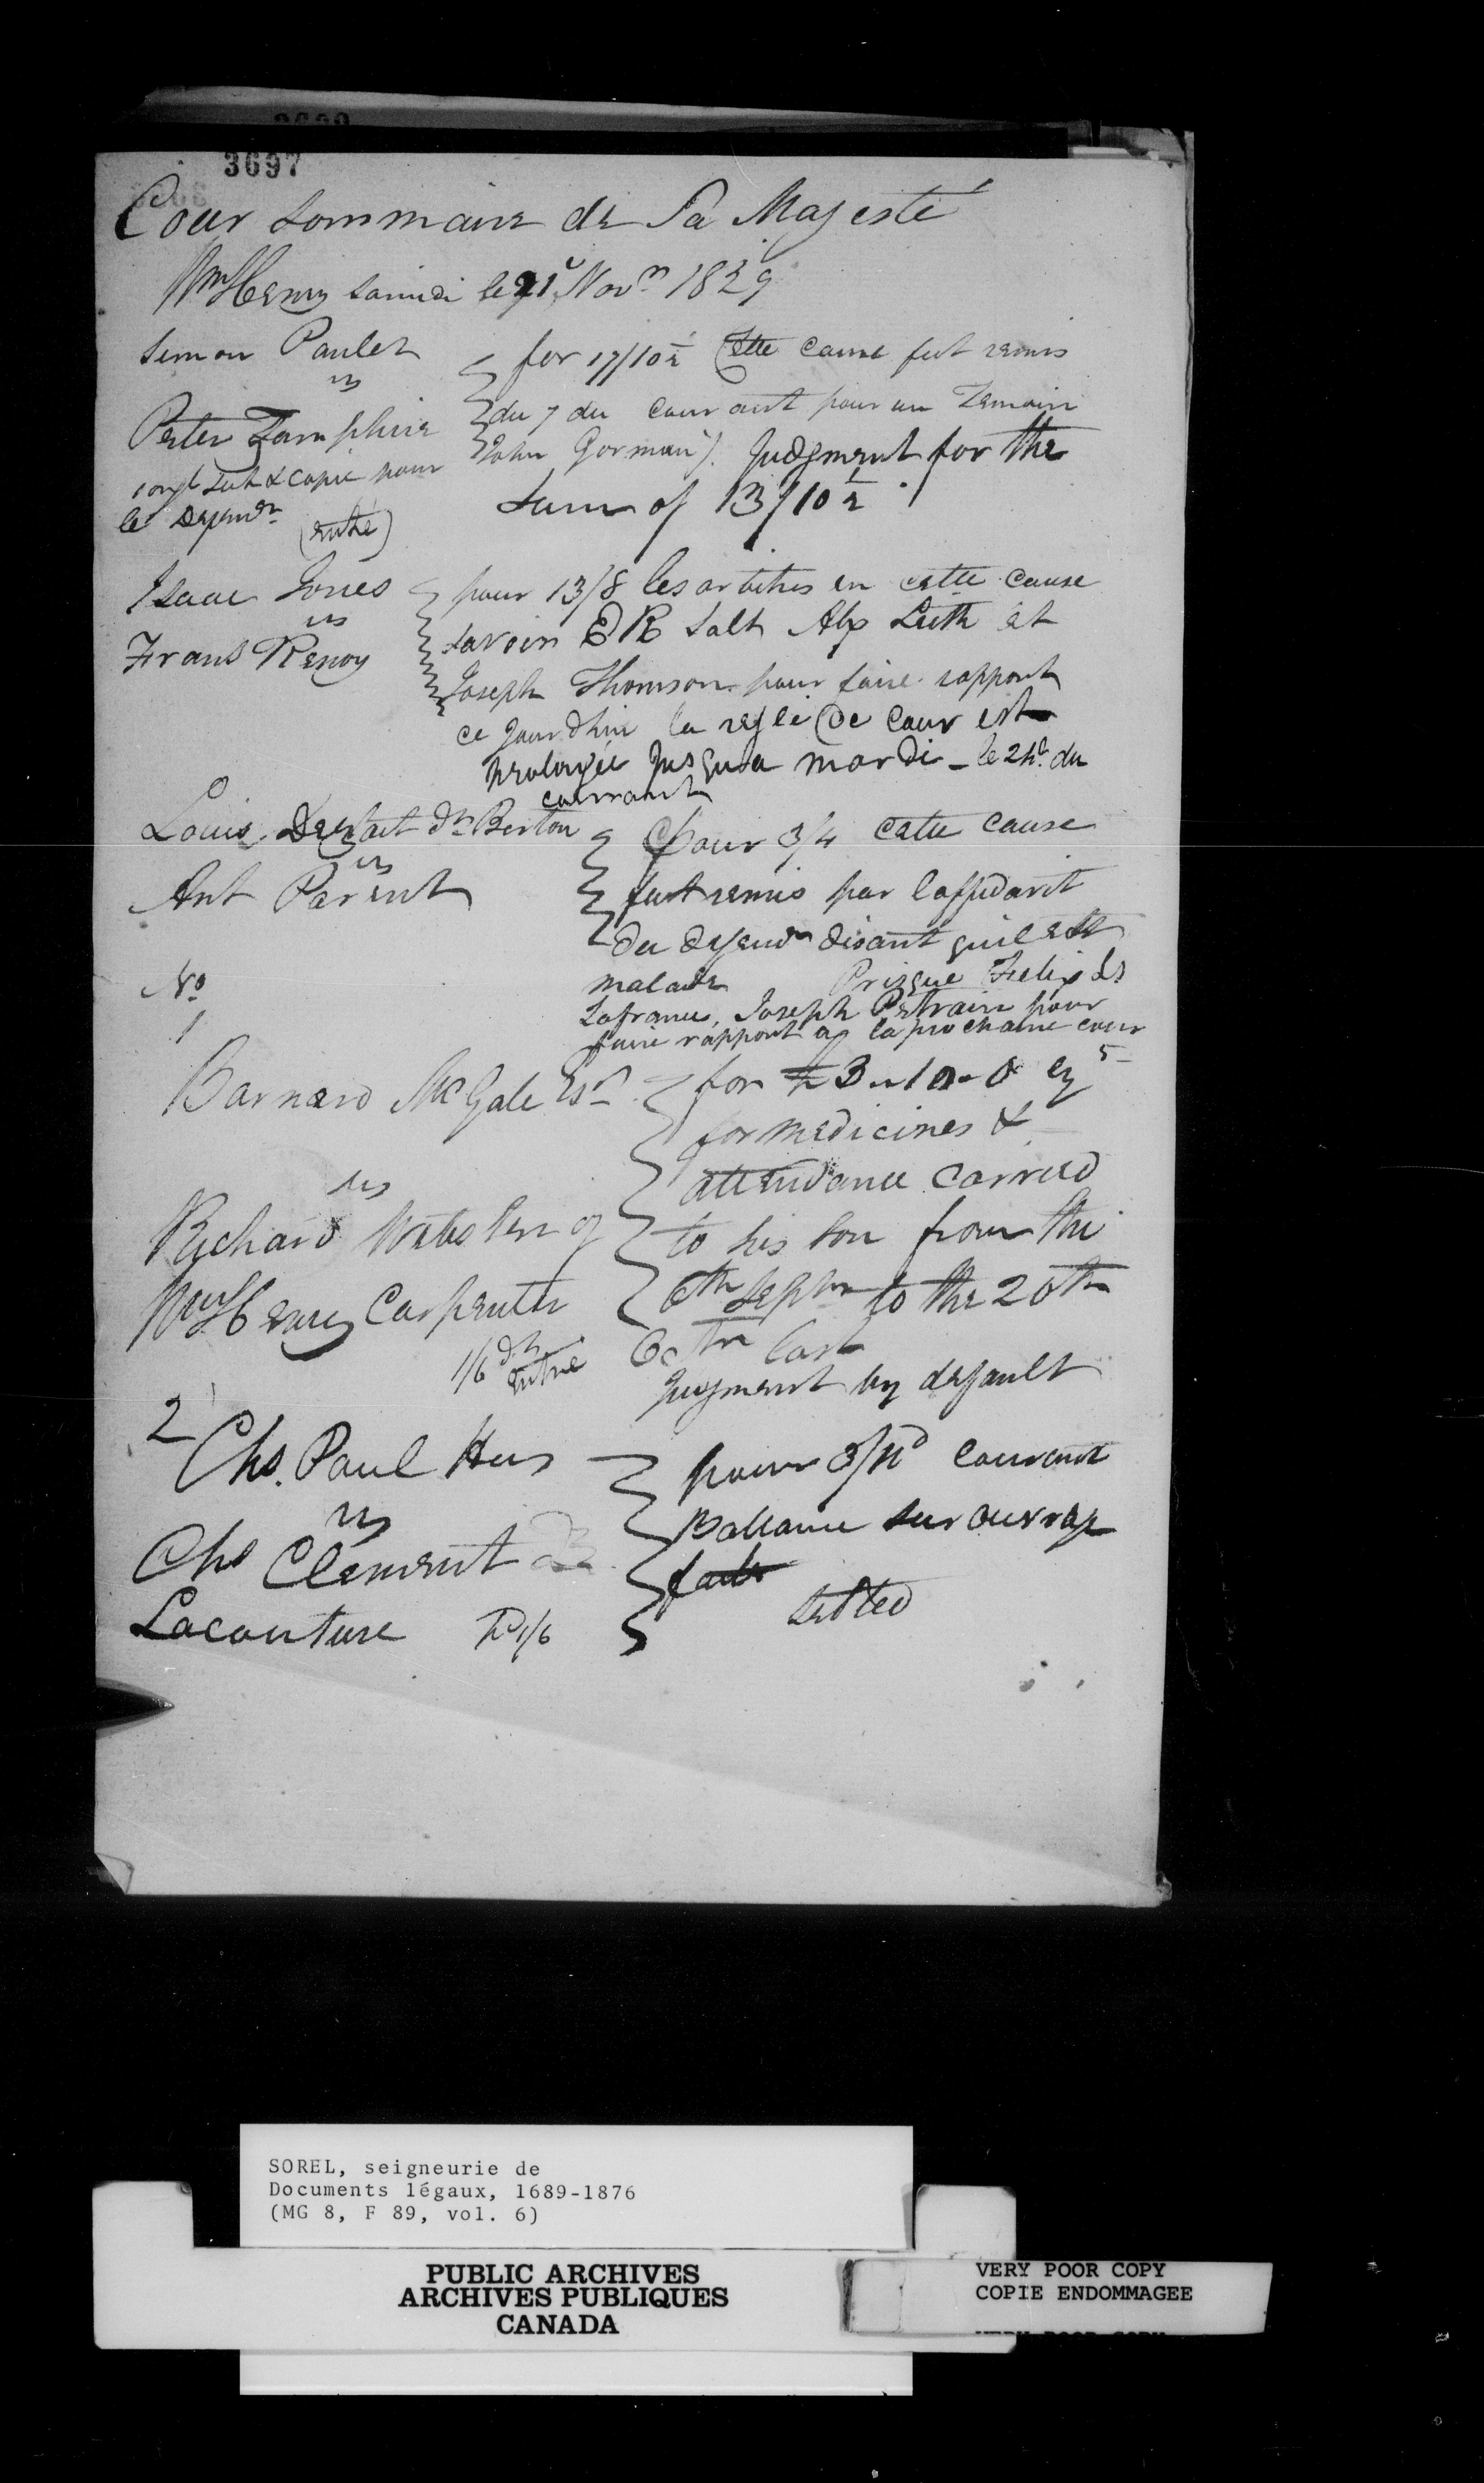 3697
Cour sommaire de Sa Majesté
Wm Henry samedi le 21e Novm 1829
Simon Paulet
vs
Peter Lamphier
le Defendr
(entré)
for 17/10½ Cette cause fut remis
du 7 du courant pour un Temoin
John Gorman). Judgment for the
Sum of 13/10½
Isaac Jones
vs
Frans Renoy
pour 13/8 les arbitres en cette cause
savoir E R Salt Alx Luth et
Joseph Thomson pour faire rapport
ce jourdhui la regle de cour est
prolongée jusqua mardi - le 24e du
courrant
Louis dt Berton
vs
Ant Parent
pour 3/4 cette cause
fut remis par laffidavit
du defendr disant quil est
malade Prisque Felix dt
Lafrance, Joseph Petrain pour
faire rapport a la prochaine cour
No
1
Barnard McGale Esr
vs
Richard Webster of
Wm Henry Carpenter
1/6 dt
entré
for £ 3 - 10 - 0 cy
for medicines &
attendance carried
to his son from the
6th Septr to the 20th
Octr last
Jugment by default
2
Chs. Paul Hus
vs
Chs Clement
Lacouture Pd 1/6
pour 3/11d courant
Ballance sur ouvrage
faite
settled
SOREL, seigneurie de
Documents légaux, 1689-1876
(MG 8, F 89, vol. 6)
PUBLIC ARCHIVES
ARCHIVES PUBLIQUES
CANADA
VERY POOR COPY
COPIE ENDOMMAGEE
VERY POOR COPY